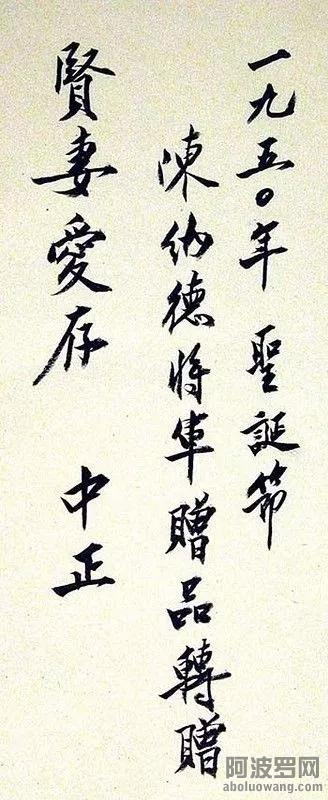 一九五〇年 聖誕節
陳納德將軍贈品轉贈
賢妻愛存 中正
阿波罗网
aboluowang.com